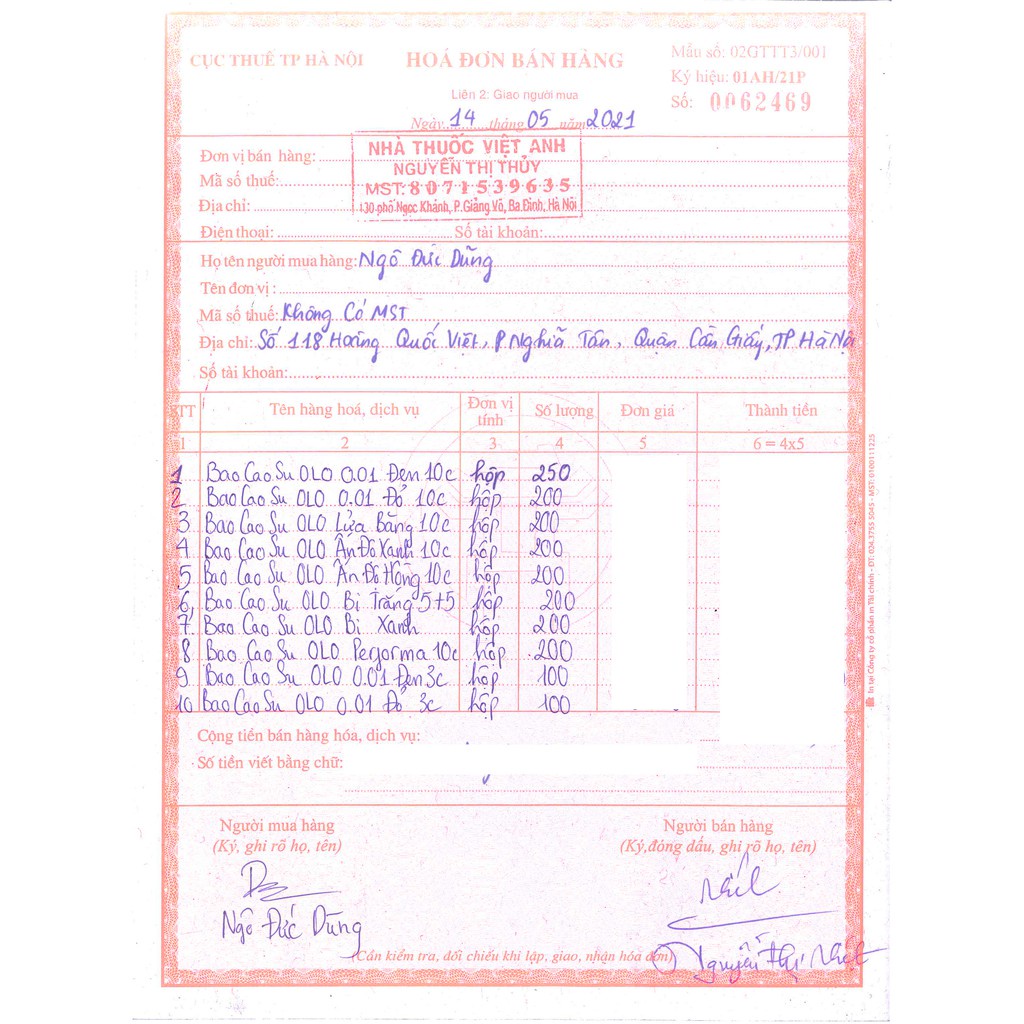 CỤC THUẾ TP HÀ NỘI
HOÁ ĐƠN BÁN HÀNG
Mẫu số: 02GTTT3/001
Ký hiệu: 01AH/21P
Liên 2: Giao người mua
Số: 0062469
Ngày 14 tháng 05 năm 2021
NHÀ THUỐC VIỆT ANH
NGUYỄN THỊ THỦY
MST: 8071539635
130 phố Ngọc Khánh, P.Giảng Võ, Ba Đình, Hà Nội
Đơn vị bán hàng:
Mã số thuế:
Địa chỉ:
Điện thoại: Số tài khoản:
Họ tên người mua hàng: Ngô Đức Dũng
Tên đơn vị:
Mã số thuế: Không Có MST
Địa chỉ: Số 118 Hoàng Quốc Việt, P Nghĩa Tân, Quận Cầu Giấy, TP Hà Nội
Số tài khoản:
STT Tên hàng hoá, dịch vụ Đơn vị tính Số lượng Đơn giá Thành tiền
1 2 3 4 5 6 = 4x5
1 Bao Cao Su OLO 0.01 Đen 10c hộp 250
2 Bao Cao Su OLO 0.01 Đỏ 10c hộp 200
3 Bao Cao Su OLO Lửa Băng 10c hộp 200
4 Bao Cao Su OLO Ấn Độ Xanh 10c hộp 200
5 Bao Cao Su OLO Ấn Độ Hồng 10c hộp 200
6, Bao Cao Su OLO Bi Trắng 5+5 hộp 200
7. Bao Cao Su OLO Bi Xanh hộp 200
8 Bao Cao Su OLO Performa 10c hộp 200
9 Bao Cao Su OLO 0.01 Đen 3c hộp 100
10 Bao Cao Su OLO 0.01 Đỏ 3c hộp 100
Cộng tiền bán hàng hóa, dịch vụ:
Số tiền viết bằng chữ:
Người mua hàng
(Ký, ghi rõ họ, tên)
Ngô Đức Dũng
Người bán hàng
(Ký,đóng dấu, ghi rõ họ, tên)
Nguyễn Thị
(Cần kiểm tra, đối chiếu khi lập, giao, nhận hóa đơn)
In tại Công ty cổ phần in Tài chính - ĐT: 024.3755 5045 - MST: 0100111225